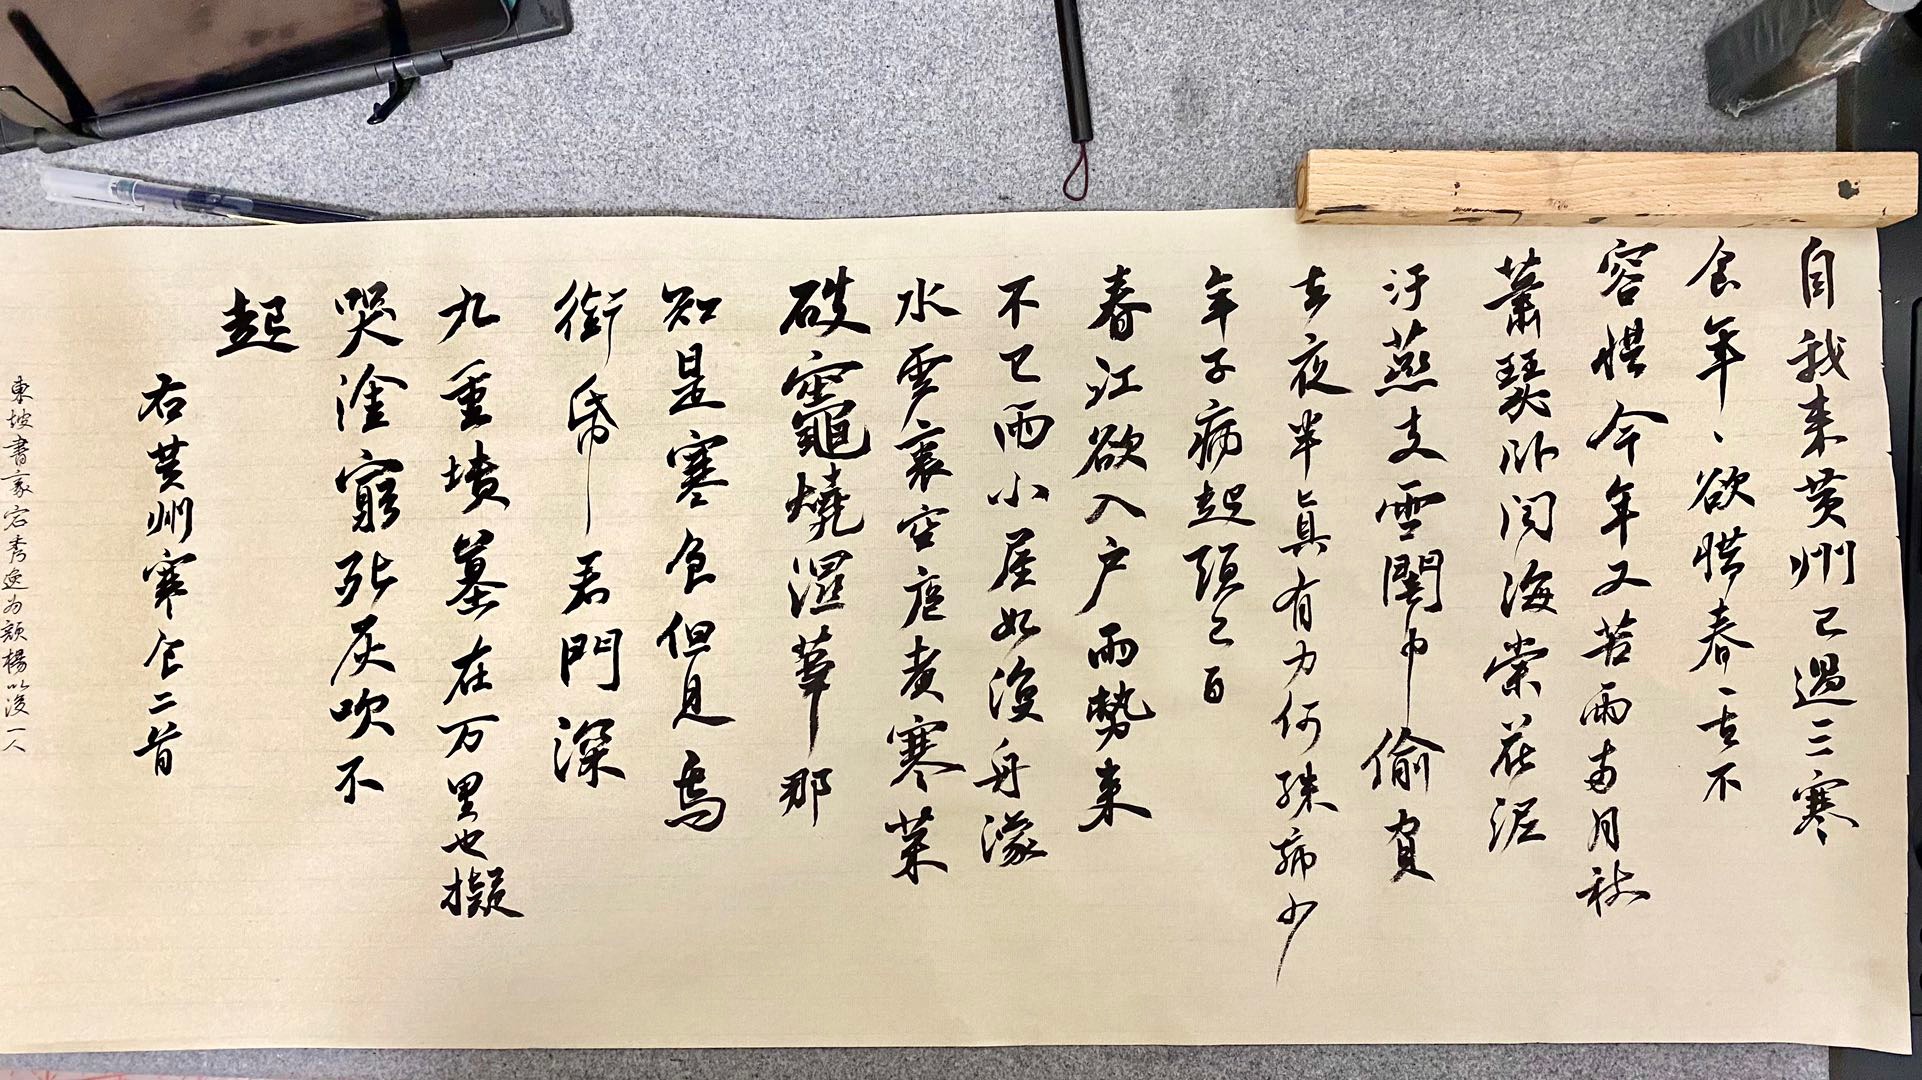 自我来黄州已過三寒
食年、欲惜春、去不
容惜今年又苦雨兩月秋
蕭瑟卧聞海棠花泥
汙燕支雪闇中偷負
去夜半真有力何殊病少
年子病起頭已白
春江欲入户雨勢来
不已雨小屋如漁舟濛
水雲裏空庖煮寒菜
破竈燒濕葦那
知是寒食但見烏
銜帋君門深
九重墳墓在万里也擬
哭塗窮死灰吹不
起
右黄州寒食二首
東坡書豪宕秀逸为顏楊以後一人